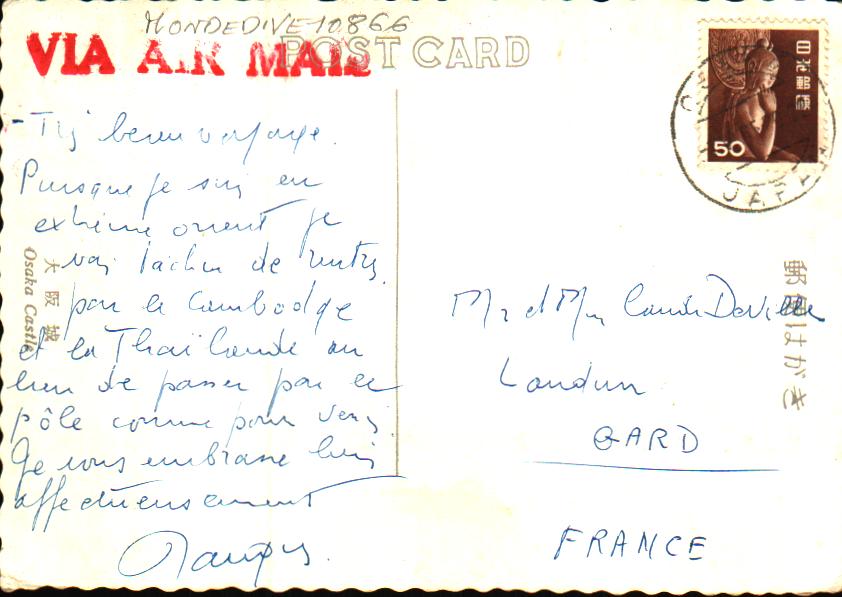 MONDEDIVE10866
VIA AIR MAIL
POST CARD
日本郵便
50
JAPAN
beau voyage.
Puisque je suis en
extrême orient je
vais tâcher de rentrer
par le Cambodge
et la Thaïlande au
lieu de passer par le
pôle comme pour venir
Je vous embrasse bien
affectueusement
大阪城
Osaka Castle
Mr et Mme Claude Deville
Laudun
GARD
FRANCE
郵便はがき